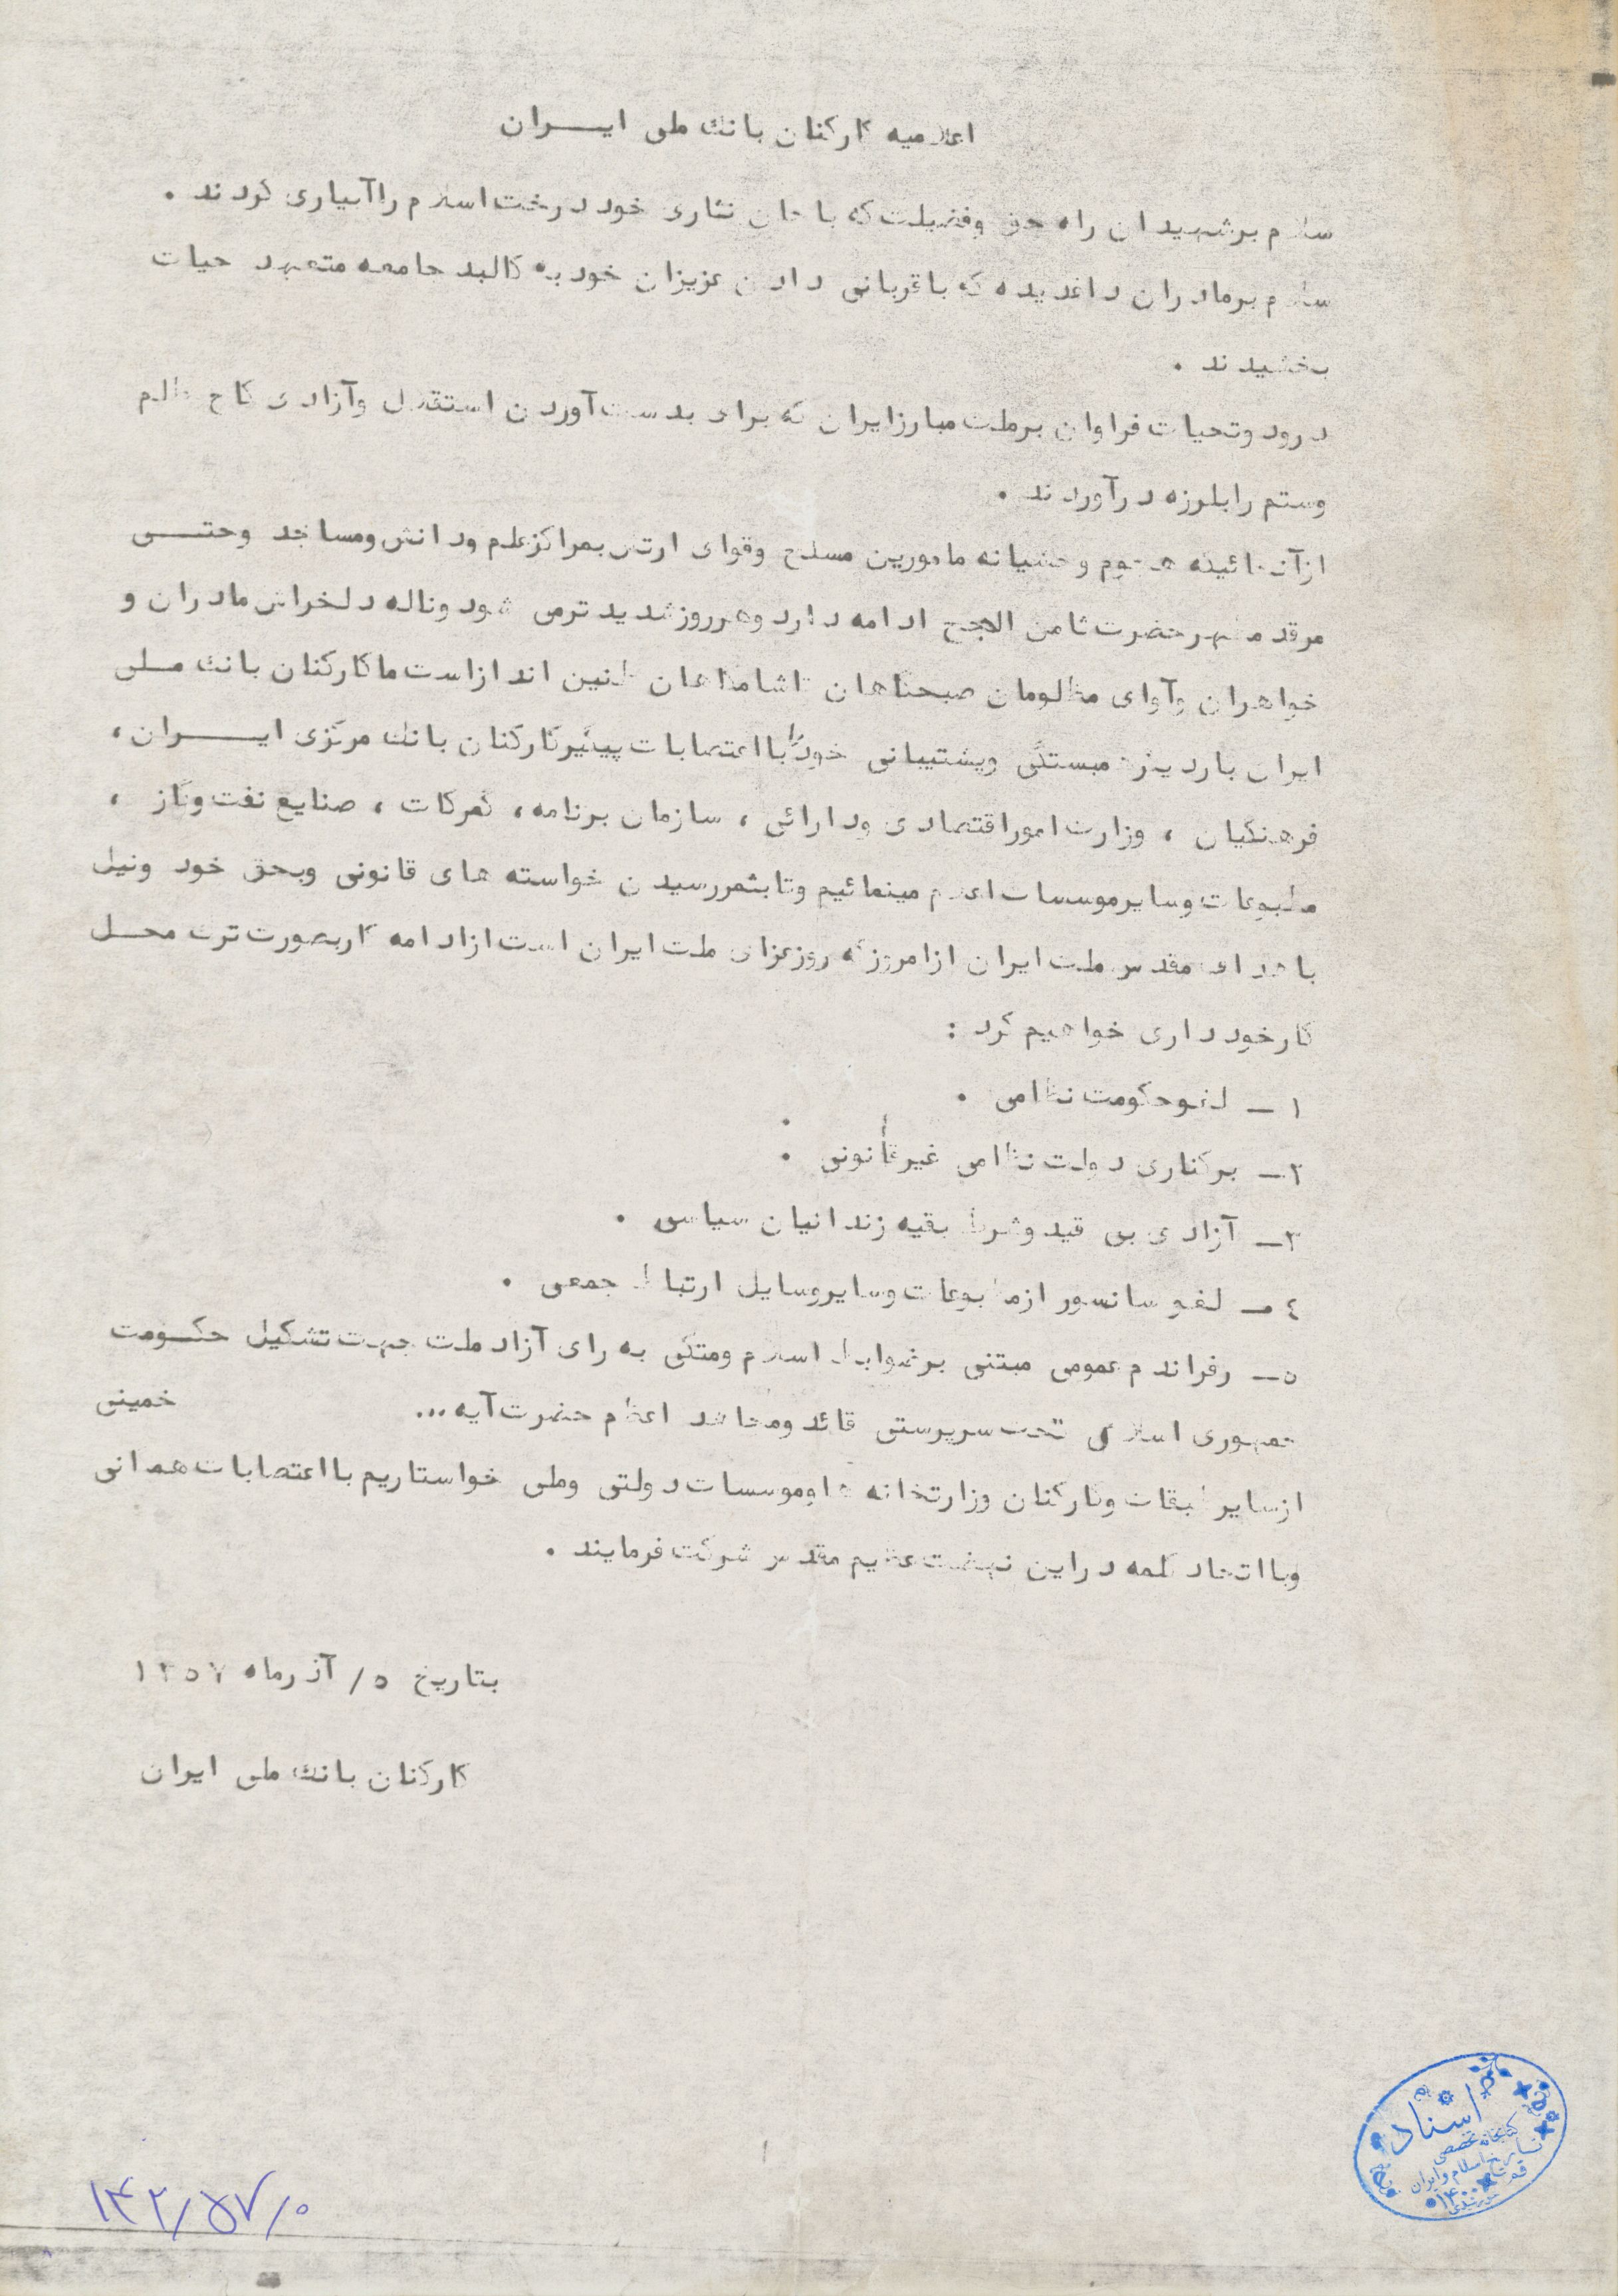 اعلامیه کارکنان بانک ملی ایــــران
سلام برشهیدان راه حق وفضیلت که با جان نثاری خود درخت اسلام راآبیاری کردند .
سلام برمادران داغدیده که باقربانی دادن عزیزان خود به کالبد جامعه متعهد حیات
بخشیدند .
درود وتحیات فراوان برملت مبارزایران که برای بدست آوردن استقلال وآزادی کاخ ظلم
وستم رابلرزه درآوردند .
ازآنجائیکه هجوم وحشیانه مامورین مسلح وقوای ارتش بمراکزعلم ودانش ومساجد وحتـــی
مرقد مطهرحضرت ثامن الاحجج ادامه دارد وهرروزشدیدترمی شود وناله دلخراش مادران و
خواهران وآوای مظلومان صبحگاهان تاشامگاهان طنین اندازاست ماکارکنان بانک مـلی
ایران باردیگرهمبستگی وپشتیبانی خودرا بااعتصابات پیگیرکارکنان بانک مرکزی ایــــران ،
فرهنگیان ، وزارت اموراقتصادی ودارائی ، سازمان برنامه ، گمرکات ، صنایع نفت وگاز ،
مطبوعات وسایرموسسات اعلام مینمائیم وتابثمررسیدن خواسته های قانونی وبحق خود ونیل
باهداف مقدس ملت ایران ازامروزکه روزعزای ملت ایران است ازادامه کاربصورت ترک محــل
کارخودداری خواهیم کرد :
۱ ـ لغوحکومت نظامی .
۲ ـ برکناری دولت نظامی غیرقانونی .
۳ ـ آزادی بی قید وشرط بقیه زندانیان سیاسی .
٤ ـ لغو سانسور ازمطبوعات وسایروسایل ارتباط جمعی .
۵ ـ رفراندم عمومی مبتنی برضوابط اسلام ومتکی به رای آزاد ملت جهت تشکیل حکـومت
جمهوری اسلامی تحت سرپرستی قائد ومجاهد اعظم حضرت آیه ... خمینی
ازسایرطبقات وکارکنان وزارتخانه هاوموسسات دولتی وملی خواستاریم بااعتصابات همگانی
وبااتحاد کلمه دراین نهضت عظیم مقدس شرکت فرمایند .
بتاریخ ۵/ آذرماه ۱۳۵۷
کارکنان بانک ملی ایران
اسناد
کتابخانه تخصصی
تاریخ اسلام و ایران
قم
۱۴۰۰
۱۴۲/۵۷/۰